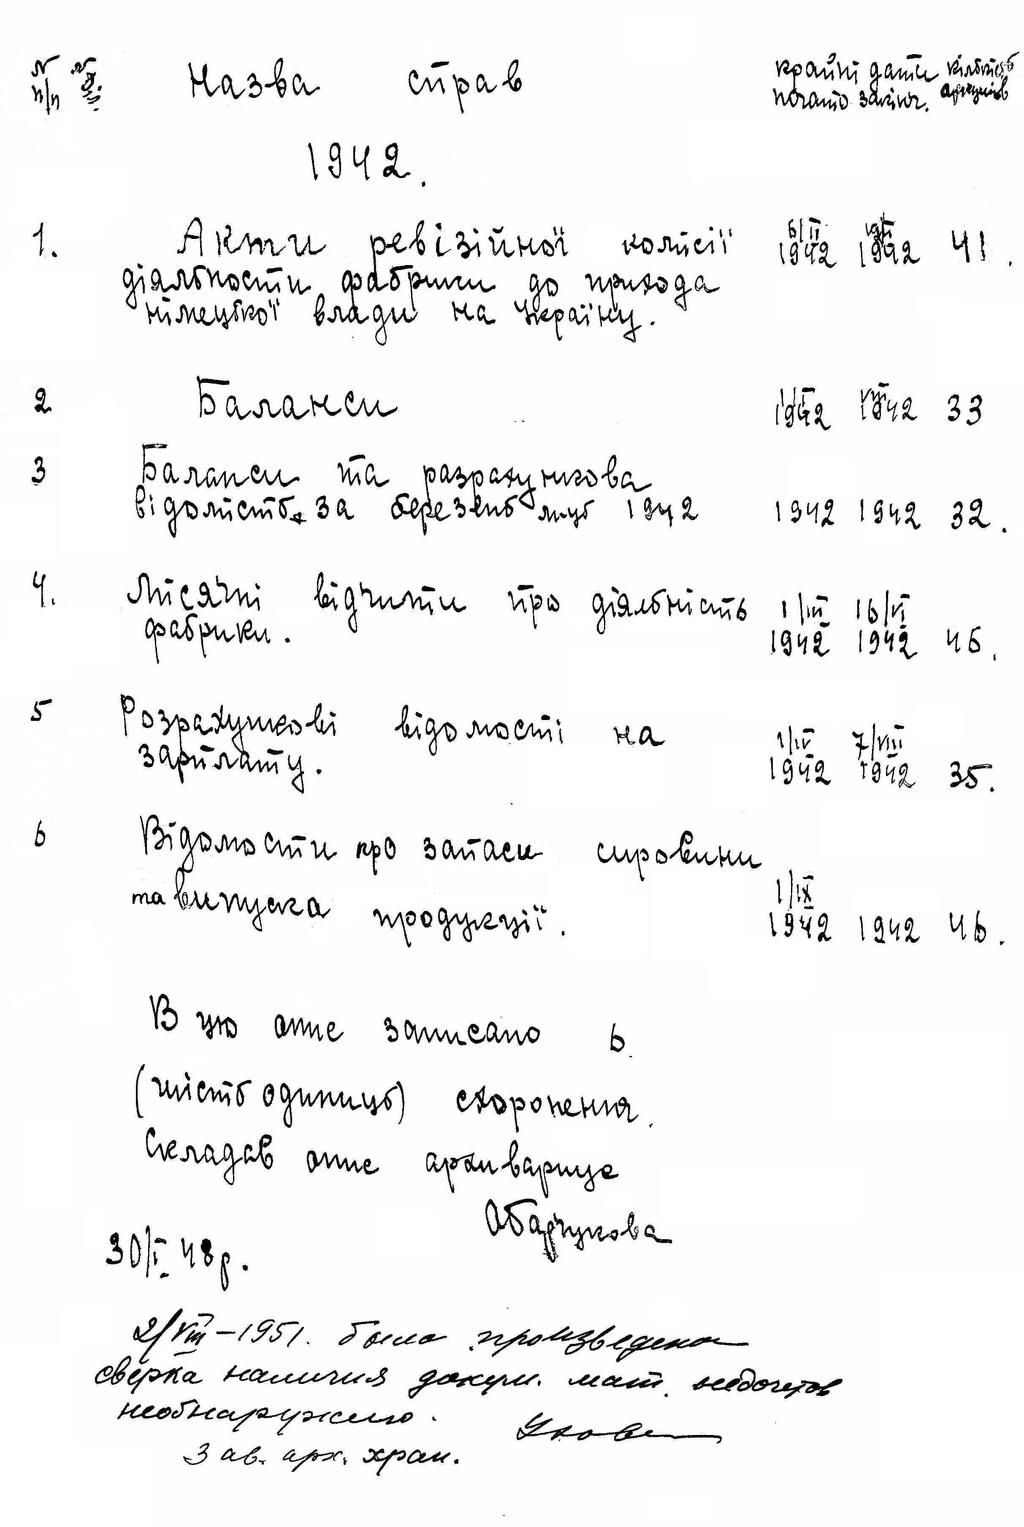 № п/п Назва справ крайні дати кількість
почато закінч. аркушів
1942.
1. Акти ревізійної комісії 6/II 1942 1942 41.
діяльности фабрики до прихода
німецької влади на Україну.
2 Баланси 1/II 1942 VIII 1942 33
3 Баланси та разрахункова
відомість за березень м-ць 1942 1942 1942 32.
4. Місячні відчити про діяльність 1/III 16/VI
фабрики. 1942 1942 45.
5 Розрахункові відомості на 1/IV 7/VIII
зарплату. 1942 1942 35.
6 Відомости про запаси сировини
та випуска продукції. 1/IX 1942 1942 46.
В цю опис записано 6
(шість одиниць) схоронення.
Складав опис архиваріус
Абарчукова
30/I 48 р.
2/VIII – 1951. была произведена
сверка наличия докум. мат. недочетов
необнаружено.
Зав. арх. хран.